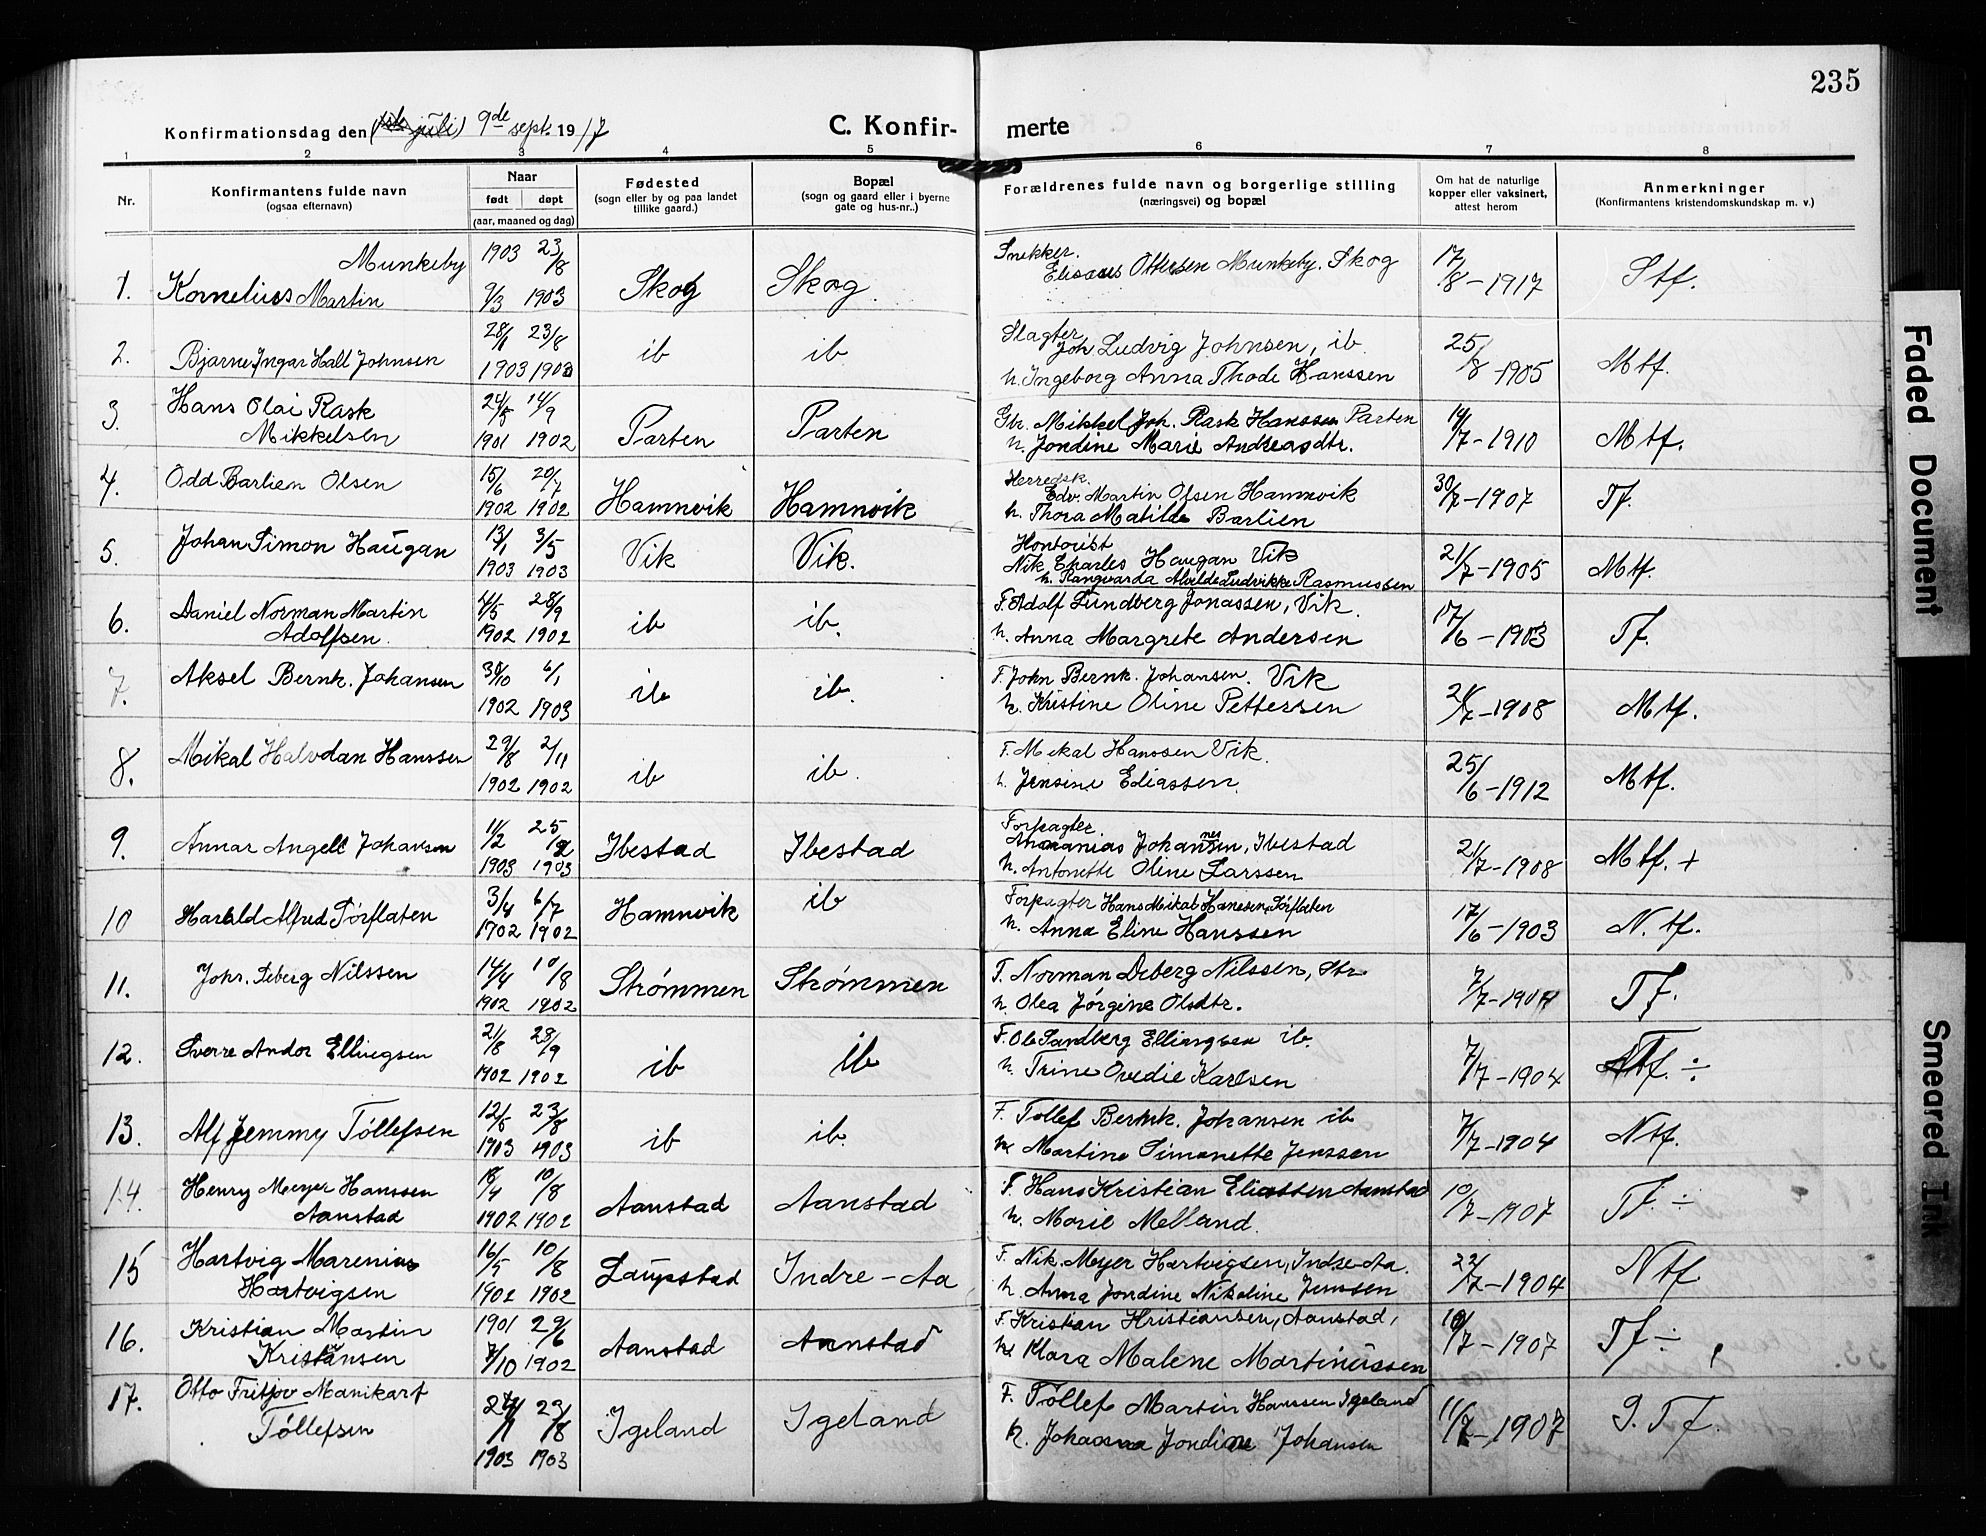 235
Konfirmationsdag den (1ste juli) 9de sept. 1917
C. Konfir- merte
1 2 3 4 5 6 7 8
Nr.
Konfirmantens fulde navn
(ogsaa efternavn)
Naar
født døpt
(aar, maaned og dag)
Fødested
(sogn eller by og paa landet
tillike gaard.)
Bopæl
(sogn og gaard eller i byerne
gate og hus-nr..)
Forældrenes fulde navn og borgerlige stilling
(næringsvei) og bopæl
Om hat de naturlige
kopper eller vaksinert,
attest herom
Anmerkninger
(Konfirmantens kristendomskundskap m. v.)
Munkeby 1903 23/8 Snekker.
1. Kornelius Martin 9/3 1903 Skog Skog Elisæus Ottersen Munkeby. Skog 17/8-1917 Stf.
28/1 23/8 Slagter
2. Bjarne Ingar Hall Johnsen 1903 1903 ib ib Joh. Ludvig Johnsen, ib. 25/8-1905 Mtf.
h. Ingeborg Anna Thode Hanssen
3. Hans Olai Rask 24/5 14/9 Gbr. Mikkel Joh. Rask Hanssen Parten
Mikkelsen 1901 1902 Parten Parten h. Jondine Marie Andreasdtr. 14/7-1910 Mtf.
4. Odd Barlien Olsen 15/6 20/7 Herredsk.
1902 1902 Hamnvik Hamnvik Edv. Martin Olsen Hamnvik 30/7-1907 Tf.
h. Thora Matilde Barlien
5. Johan Simon Haugan 13/1 3/5 Vik Vik. Kontorist
1903 1903 Nik. Charles Haugan Vik 21/7-1905 Mtf.
h. Rangvarda Alvilde Ludvikke Rasmussen
6. Daniel Norman Martin 4/5 28/9 F. Adolf Sundberg Jonassen, Vik.
Adolfsen. 1902 1902 ib ib. h. Anna Margrete Andersen 17/6-1903 Tf.
7. Aksel Bernh. Johansen 30/10 6/1 F. John Bernh. Johansen. Vik
1902 1903 ib ib. h. Kristine Oline Pettersen 21/7-1908 Mtf.
8. Mikal Halvdan Hanssen 29/8 2/11 F. Mikal Hanssen Vik.
1902 1902 ib ib. h. Jensine Eliassen. 25/6-1912 Mtf.
9. Annar Angell Johansen 11/2 25/12 Forpagter.
1903 1903 Ibestad Ibestad Ananias Johannesen, Ibestad 21/7-1908 Mtf. +
h. Antonette Oline Larssen
10 Harald Alfred Sørflaten 3/4 6/7 Hamnvik ib Forpagter Hans Mikal Hanssen Sørflaten
1902 1902 h. Anna Eline Hanssen 17/6-1903 N. tf.
11. Johs. Seberg Nilssen 14/4 10/8 Strømmen Strømmen F. Norman Seberg Nilssen, Str.
1902 1902 h. Olea Jørgine Olsdtr. 7/7-1904 Tf.
12. Sverre Andor Ellingsen 21/8 28/9 F. Ole Sandberg Ellingsen ib.
1902 1902 ib ib h. Trine Ovedie Karlsen 7/7-1904 Ntf. ÷
13. Alf Jemmy Tøllefsen 12/5 23/8 F. Tøllef Bernh. Johansen ib
1903 1903 ib ib. h. Martine Simonette Jenssen 7/7-1904 Ntf.
14. Henry Meyer Hanssen 18/4 10/8 F. Hans Kristian Eliassen Aanstad
Aanstad 1902 1902 Aanstad Aanstad h. Marie Melland. 10/7-1907 Tf. ÷
15 Hartvig Marenius 16/5 10/8 F. Nik. Meyer Hartvigsen, Indre-Aa.
Hartvigsen 1902 1902 Laupstad Indre-Aa h. Anna Jondine Nikoline Jenssen 22/7-1904 Ntf
16. Kristian Martin 1901 29/6 F. Kristian Kristiansen, Aanstad,
Kristiansen 7/10 1902 Aanstad Aanstad h. Klara Malene Martinussen 10/7-1907 Tf ÷
17. Otto Fritjov Manikart 24/1 23/8 F. Tøllef Martin Hanssen Igeland
Tøllefsen 1903 1903 Igeland Igeland h. Johanna Jondine Johansen 11/7-1907 I. Tf.
Faded Document
Smeared Ink